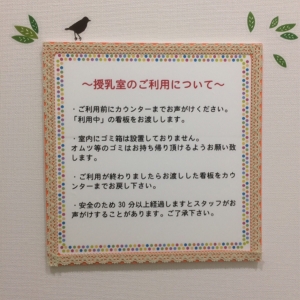 ～授乳室のご利用について～
・ご利用前にカウンターまでお声がけください。
「利用中」の看板をお渡しします。
・室内にゴミ箱は設置しておりません。
オムツ等のゴミはお持ち帰り頂けるようお願い致
します。
・ご利用が終わりましたらお渡しした看板をカウ
ンターまでお戻し下さい。
・安全のため 30 分以上経過しますとスタッフがお
声がけすることがあります。ご了承下さい。